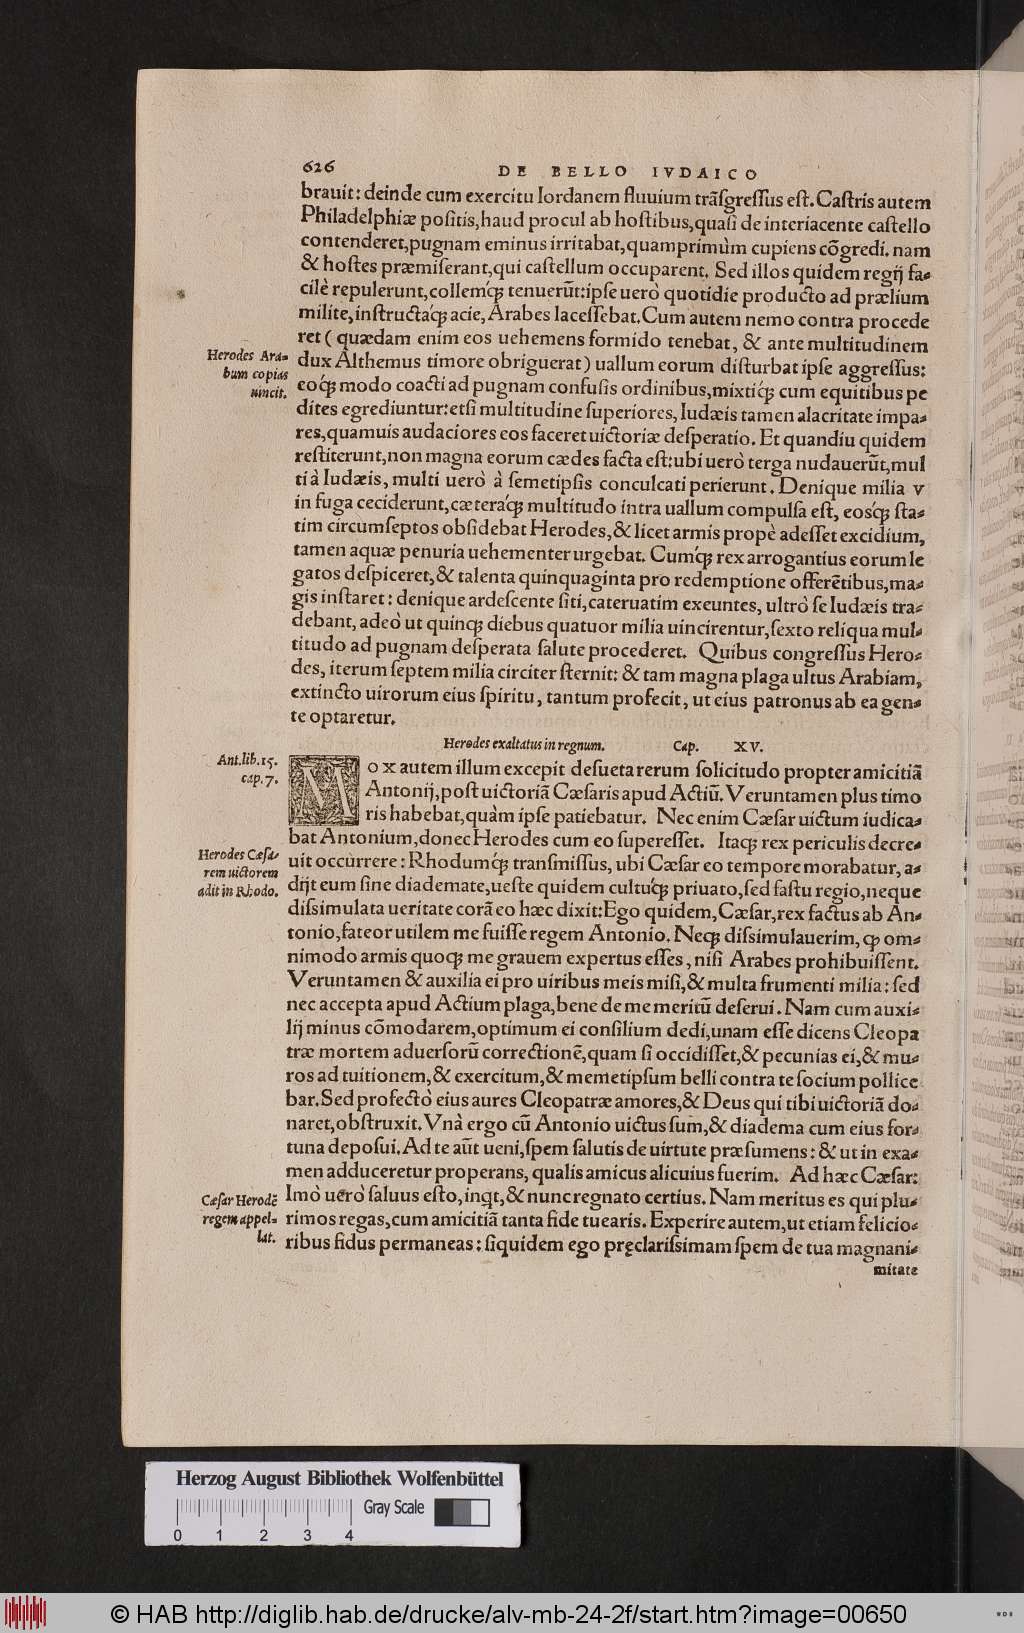 626 DE BELLO IVDAICO
brauit: deinde cum exercitu Iordanem fluuium trãſgreſſus eſt. Caſtris autem
Philadelphiæ poſitis, haud procul ab hoſtibus, quaſi de interiacente caſtello
contenderet, pugnam eminus irritabat, quamprimùm cupiens cõgredi. nam
& hoſtes præmiſerant, qui caſtellum occuparent. Sed illos quidem regij fa-
cilè repulerunt, collemq́ꝫ tenuerũt: ipſe uerò quotidie producto ad prælium
milite, inſtructaq́ꝫ acie, Arabes laceſſebat. Cum autem nemo contra procede
ret (quædam enim eos uehemens formido tenebat, & ante multitudinem
Herodes Ara-
bum copias
uincit.
dux Althemus timore obriguerat) uallum eorum diſturbat ipſe aggreſſus:
eoq́ꝫ modo coacti ad pugnam confuſis ordinibus, mixtiq́ꝫ cum equitibus pe
dites egrediuntur: etſi multitudine ſuperiores, Iudæis tamen alacritate impa-
res, quamuis audaciores eos faceret uictoriæ deſperatio. Et quandiu quidem
reſtiterunt, non magna eorum cædes facta eſt: ubi uerò terga nudauerũt, mul
ti à Iudæis, multi uerò à ſemetipſis conculcati perierunt. Denique milia v
in fuga ceciderunt, cæteraq́ꝫ multitudo intra uallum compulſa eſt, eosq́ꝫ ſta-
tim circumſeptos obſidebat Herodes, & licet armis propè adeſſet excidium,
tamen aquæ penuria uehementer urgebat. Cumq́ꝫ rex arrogantius eorum le
gatos deſpiceret, & talenta quinquaginta pro redemptione offerẽtibus, ma-
gis inſtaret: denique ardeſcente ſiti, cateruatim exeuntes, ultrò ſe Iudæis tra-
debant, adeò ut quinqꝫ diebus quatuor milia uincirentur, ſexto reliqua mul-
titudo ad pugnam deſperata ſalute procederet. Quibus congreſſus Hero-
des, iterum ſeptem milia circiter ſternit: & tam magna plaga ultus Arabiam,
extincto uirorum eius ſpiritu, tantum profecit, ut eius patronus ab ea gen-
te optaretur.
Herodes exaltatus in regnum. Cap. XV.
Ant. lib. 15.
cap. 7.
MOX autem illum excepit deſueta rerum ſolicitudo propter amicitiã
Antonij, poſt uictoriã Cæſaris apud Actiũ. Veruntamen plus timo
ris habebat, quàm ipſe patiebatur. Nec enim Cæſar uictum iudica-
bat Antonium, donec Herodes cum eo ſupereſſet. Itaqꝫ rex periculis decre-
Herodes Cæſa-
rem uictorem
adit in Rhodo.
uit occurrere: Rhodumq́ꝫ transmiſſus, ubi Cæſar eo tempore morabatur, a-
drijt eum ſine diademate, ueſte quidem cultuq́ꝫ priuato, ſed faſtu regio, neque
diſsimulata ueritate corã eo hæc dixit: Ego quidem, Cæſar, rex factus ab An-
tonio, fateor utilem me fuiſſe regem Antonio. Neqꝫ diſsimulauerim, ꝙ om-
nimodo armis quoqꝫ me grauem expertus eſſes, niſi Arabes prohibuiſſent.
Veruntamen & auxilia ei pro uiribus meis miſi, & multa frumenti milia: ſed
nec accepta apud Actium plaga, bene de me meritũ deſerui. Nam cum auxi-
lij minus cõmodarem, optimum ei conſilium dedi, unam eſſe dicens Cleopa
træ mortem aduerſorũ correctionẽ, quam ſi occidiſſet, & pecunias ei, & mu-
ros ad tuitionem, & exercitum, & memetipſum belli contra te ſocium pollice
bar. Sed profectò eius aures Cleopatræ amores, & Deus qui tibi uictoriã do-
naret, obſtruxit. Vnà ergo cũ Antonio uictus ſum, & diadema cum eius for-
tuna depoſui. Ad te aũt ueni, ſpem ſalutis de uirtute præſumens: & ut in exa-
men adduceretur properans, qualis amicus alicuius fuerim. Ad hæc Cæſar:
Cæſar Herodẽ
regem appel-
lat.
Imò uerò ſaluus eſto, inqt, & nunc regnato certius. Nam meritus es qui plu-
rimos regas, cum amicitiã tanta fide tuearis. Experire autem, ut etiam felicio-
ribus fidus permaneas: ſiquidem ego pręclariſsimam ſpem de tua magnani-
mitate
Herzog August Bibliothek Wolfenbüttel
Gray Scale
0 1 2 3 4
© HAB http://diglib.hab.de/drucke/alv-mb-24-2f/start.htm?image=00650